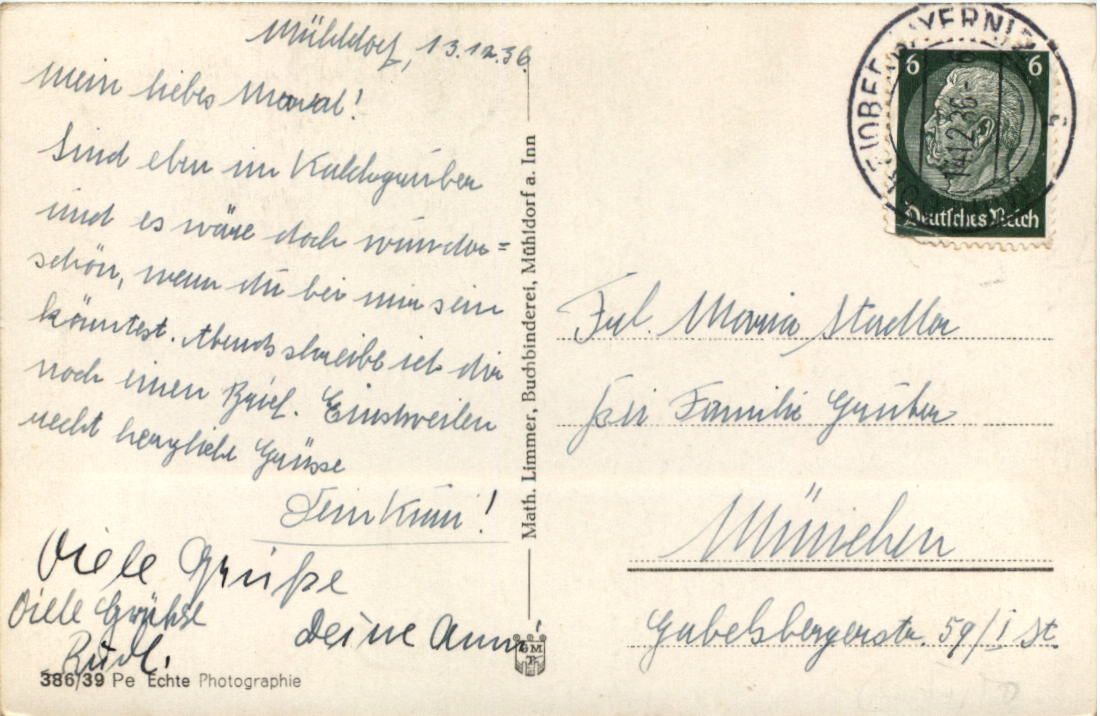 Mühldorf, 13.12.36
Mein liebes Maral!
Sind eben im
und es wäre doch wunder=
schön, wenn du bei mir sein
könntest. Abends schreibe ich dir
noch einen Brief. Einstweilen
recht herzliche Grüsse
Dein
Viele Grüße
Deine Anni
Viele Grüße
Rudl.
386/39 Pe Echte Photographie
Math. Limmer, Buchbinderei, Mühldorf a. Inn
6 6
Deutsches Reich
14.12.36
Frl. Maria Stadler
bei Familie Gruber
München
Gabelsbergerstr. 59/I St